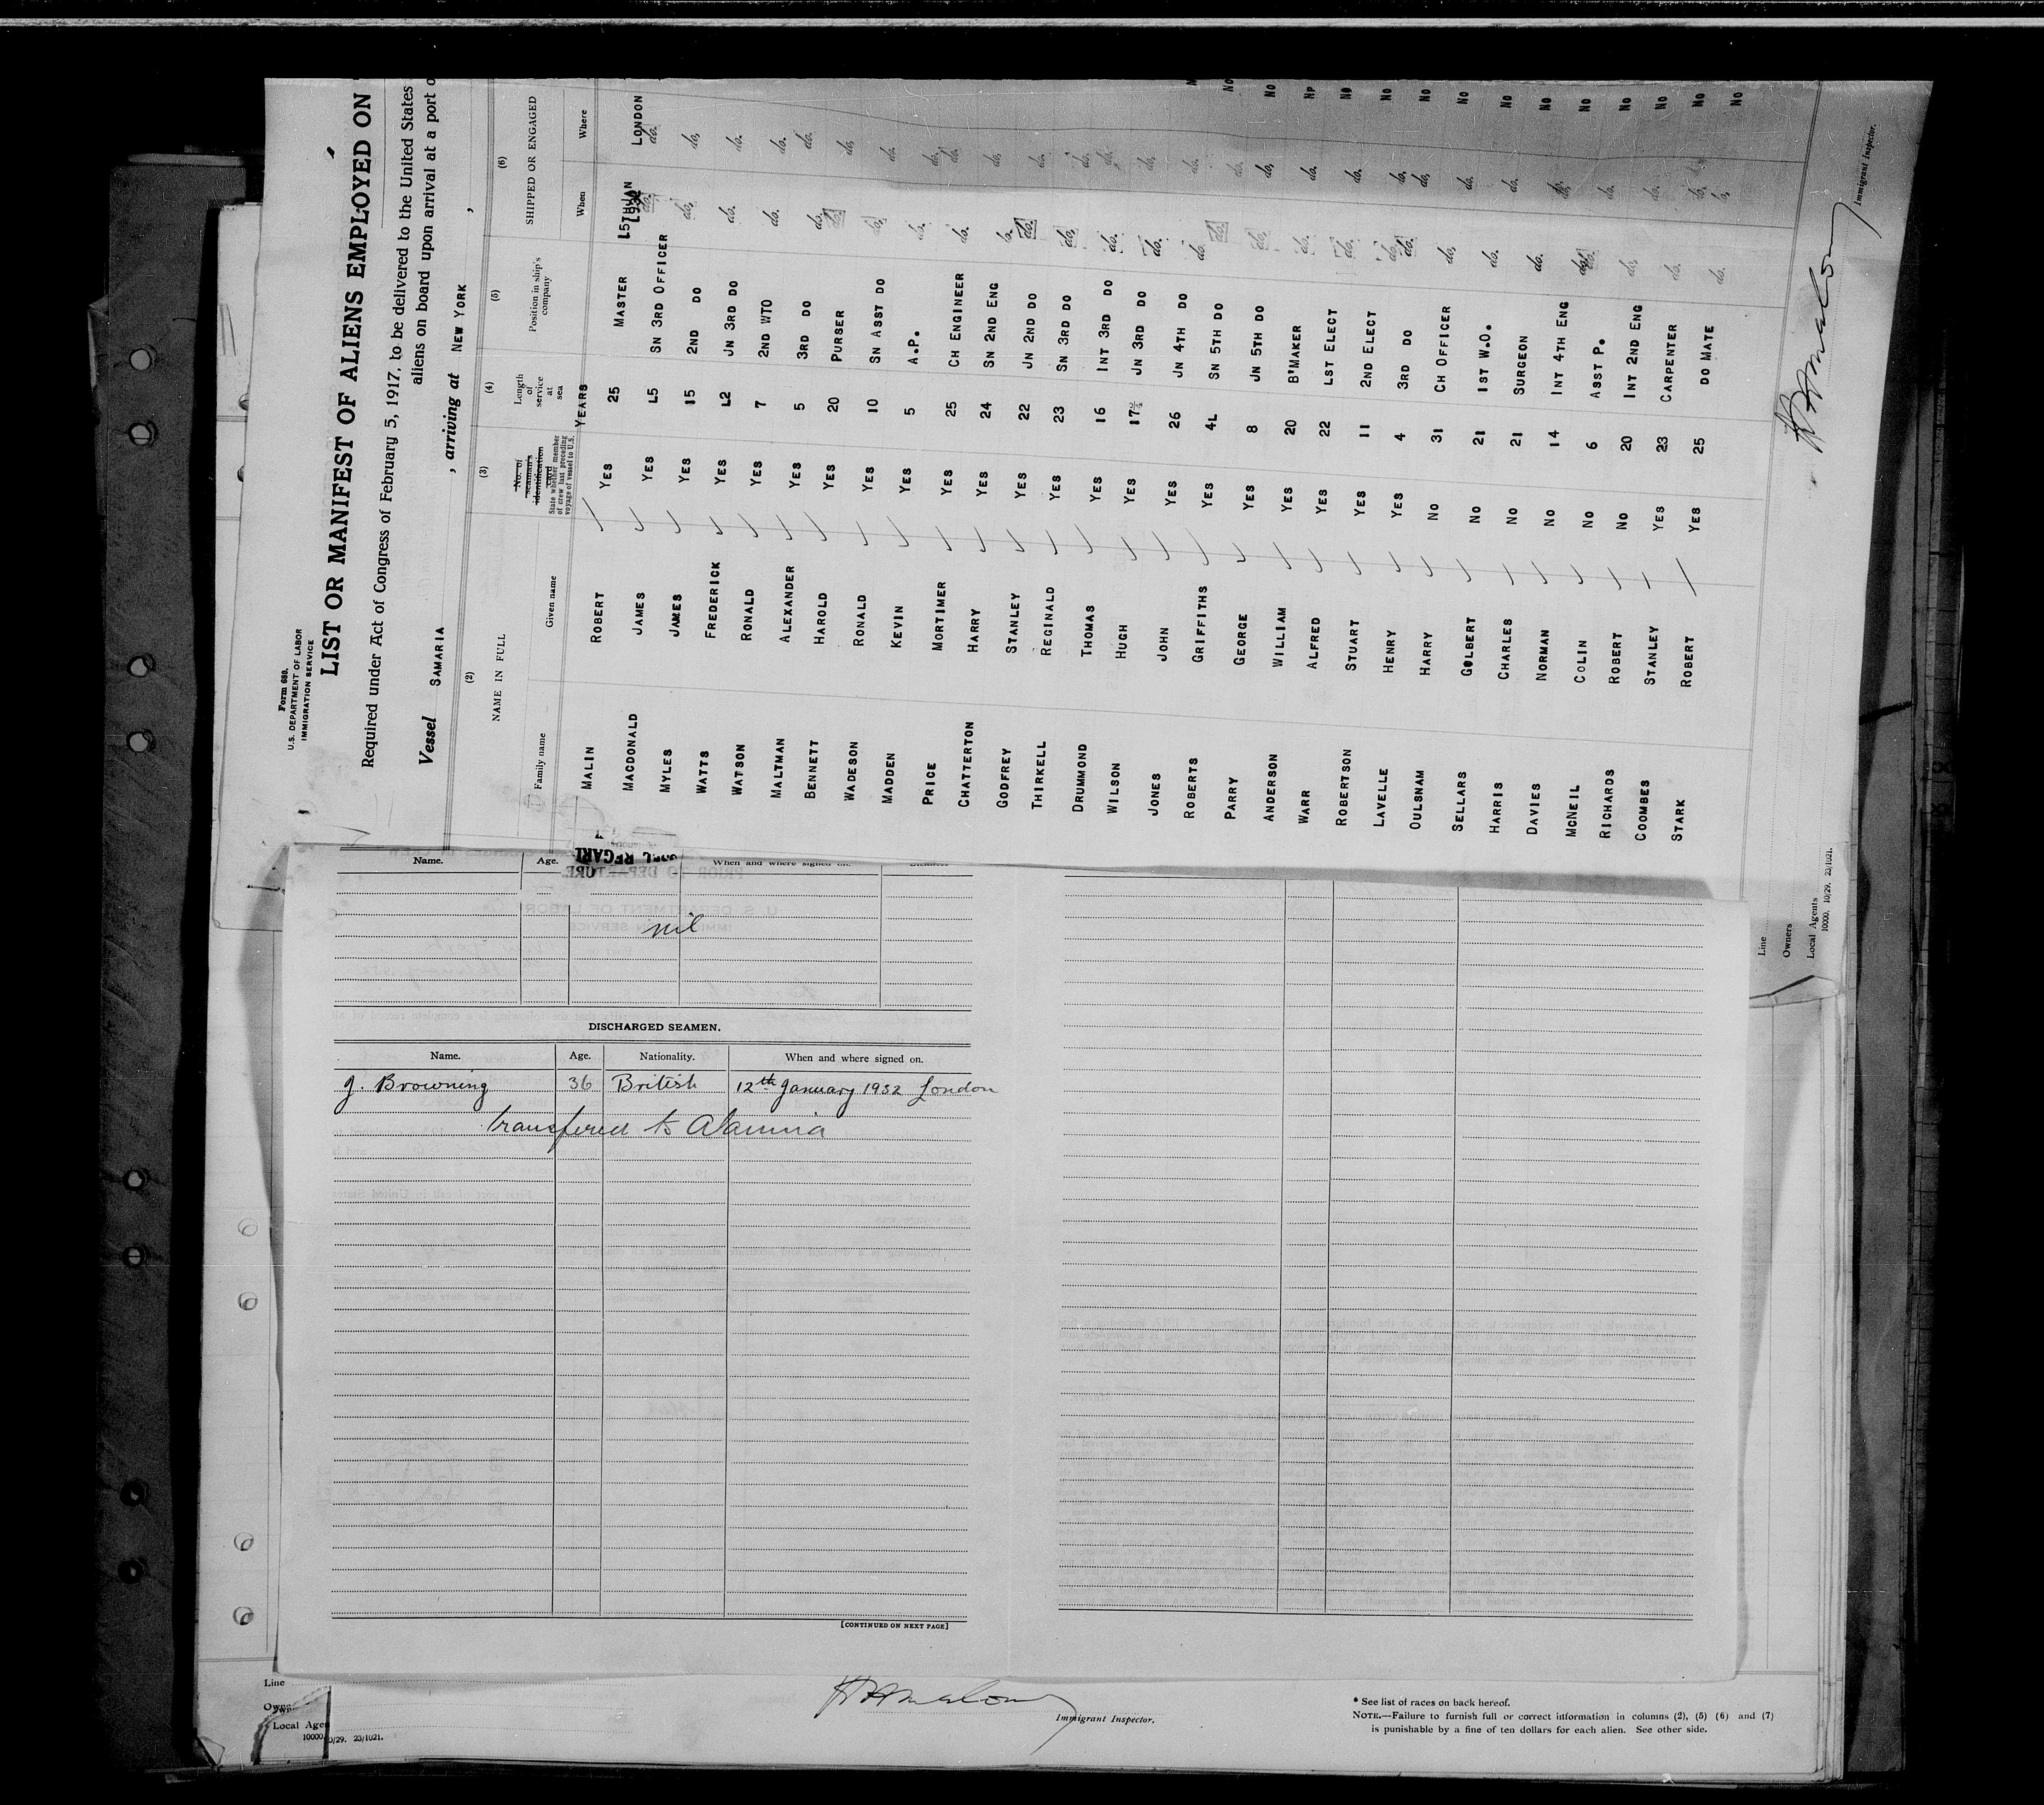 Form 689.
U.S. DEPARTMENT OF LABOR
IMMIGRATION SERVICE
LIST OR MANIFEST OF ALIENS EMPLOYED ON
Required under Act of Congress of February 5, 1917, to be delivered to the United States
aliens on board upon arrival at a port o
Vessel SAMARIA , arriving at NEW YORK ,
(2) (3) (4) (5) (6)
NAME IN FULL No. of seaman's identification card State whether member of crew last preceding voyage of vessel to U.S. Length of service at sea Position in ship's company SHIPPED OR ENGAGED
Family name Given name When Where
YEARS
MALIN ROBERT YES 25 MASTER L5THJAN L932 LONDON
MACDONALD JAMES YES L5 SN 3RD OFFICER do. do.
MYLES JAMES YES 15 2ND DO do. do.
WATTS FREDERICK YES L2 JN 3RD DO do. do.
WATSON RONALD YES 7 2ND WTO do. do.
MALTMAN ALEXANDER YES 5 3RD DO do. do.
BENNETT HAROLD YES 20 PURSER do. do.
WADESON RONALD YES 10 SN ASST DO do. do.
MADDEN KEVIN YES 5 A.P. do. do.
PRICE MORTIMER YES 25 CH ENGINEER do. do.
CHATTERTON HARRY YES 24 SN 2ND ENG do. do.
GODFREY STANLEY YES 22 JN 2ND DO do. do.
THIRKELL REGINALD YES 23 SN 3RD DO do. do.
DRUMMOND THOMAS YES 16 INT 3RD DO do. do.
WILSON HUGH YES 17¾ JN 3RD DO do. do.
JONES JOHN YES 26 JN 4TH DO do. do.
ROBERTS GRIFFITHS YES 4L SN 5TH DO do. do.
PARRY GEORGE YES 8 JN 5TH DO do. do.
ANDERSON WILLIAM YES 20 B'MAKER do. do.
WARR ALFRED YES 22 LST ELECT do. do.
ROBERTSON STUART YES 11 2ND ELECT do. do.
LAVELLE HENRY YES 4 3RD DO do. do.
OULSNAM HARRY NO 31 CH OFFICER do. do.
SELLARS GILBERT NO 21 1ST W.O. do. do.
HARRIS CHARLES NO 21 SURGEON do. do.
DAVIES NORMAN NO 14 INT 4TH ENG do. do.
MCNEIL COLIN NO 6 ASST P. do. do.
RICHARDS ROBERT NO 20 INT 2ND ENG do. do.
COOMBES STANLEY YES 23 CARPENTER do. do.
STARK ROBERT YES 25 DO MATE do. do.
No
No
No
No
No
No
No
No
No
No
No
No
No
No
Immigrant Inspector.
Line
Owners
Local Agents
10000. 10/29. 23/1021.
Name. Age. When and where signed on.
nil
DISCHARGED SEAMEN.
Name. Age. Nationality. When and where signed on.
J. Browning 36 British 12th January 1932 London
transfered to Alaunia
[CONTINUED ON NEXT PAGE]
Line
Owne
Local Agen
10000. 0/29. 23/1021.
Immigrant Inspector.
* See list of races on back hereof.
NOTE.—Failure to furnish full or correct information in columns (2), (5) (6) and (7)
is punishable by a fine of ten dollars for each alien. See other side.